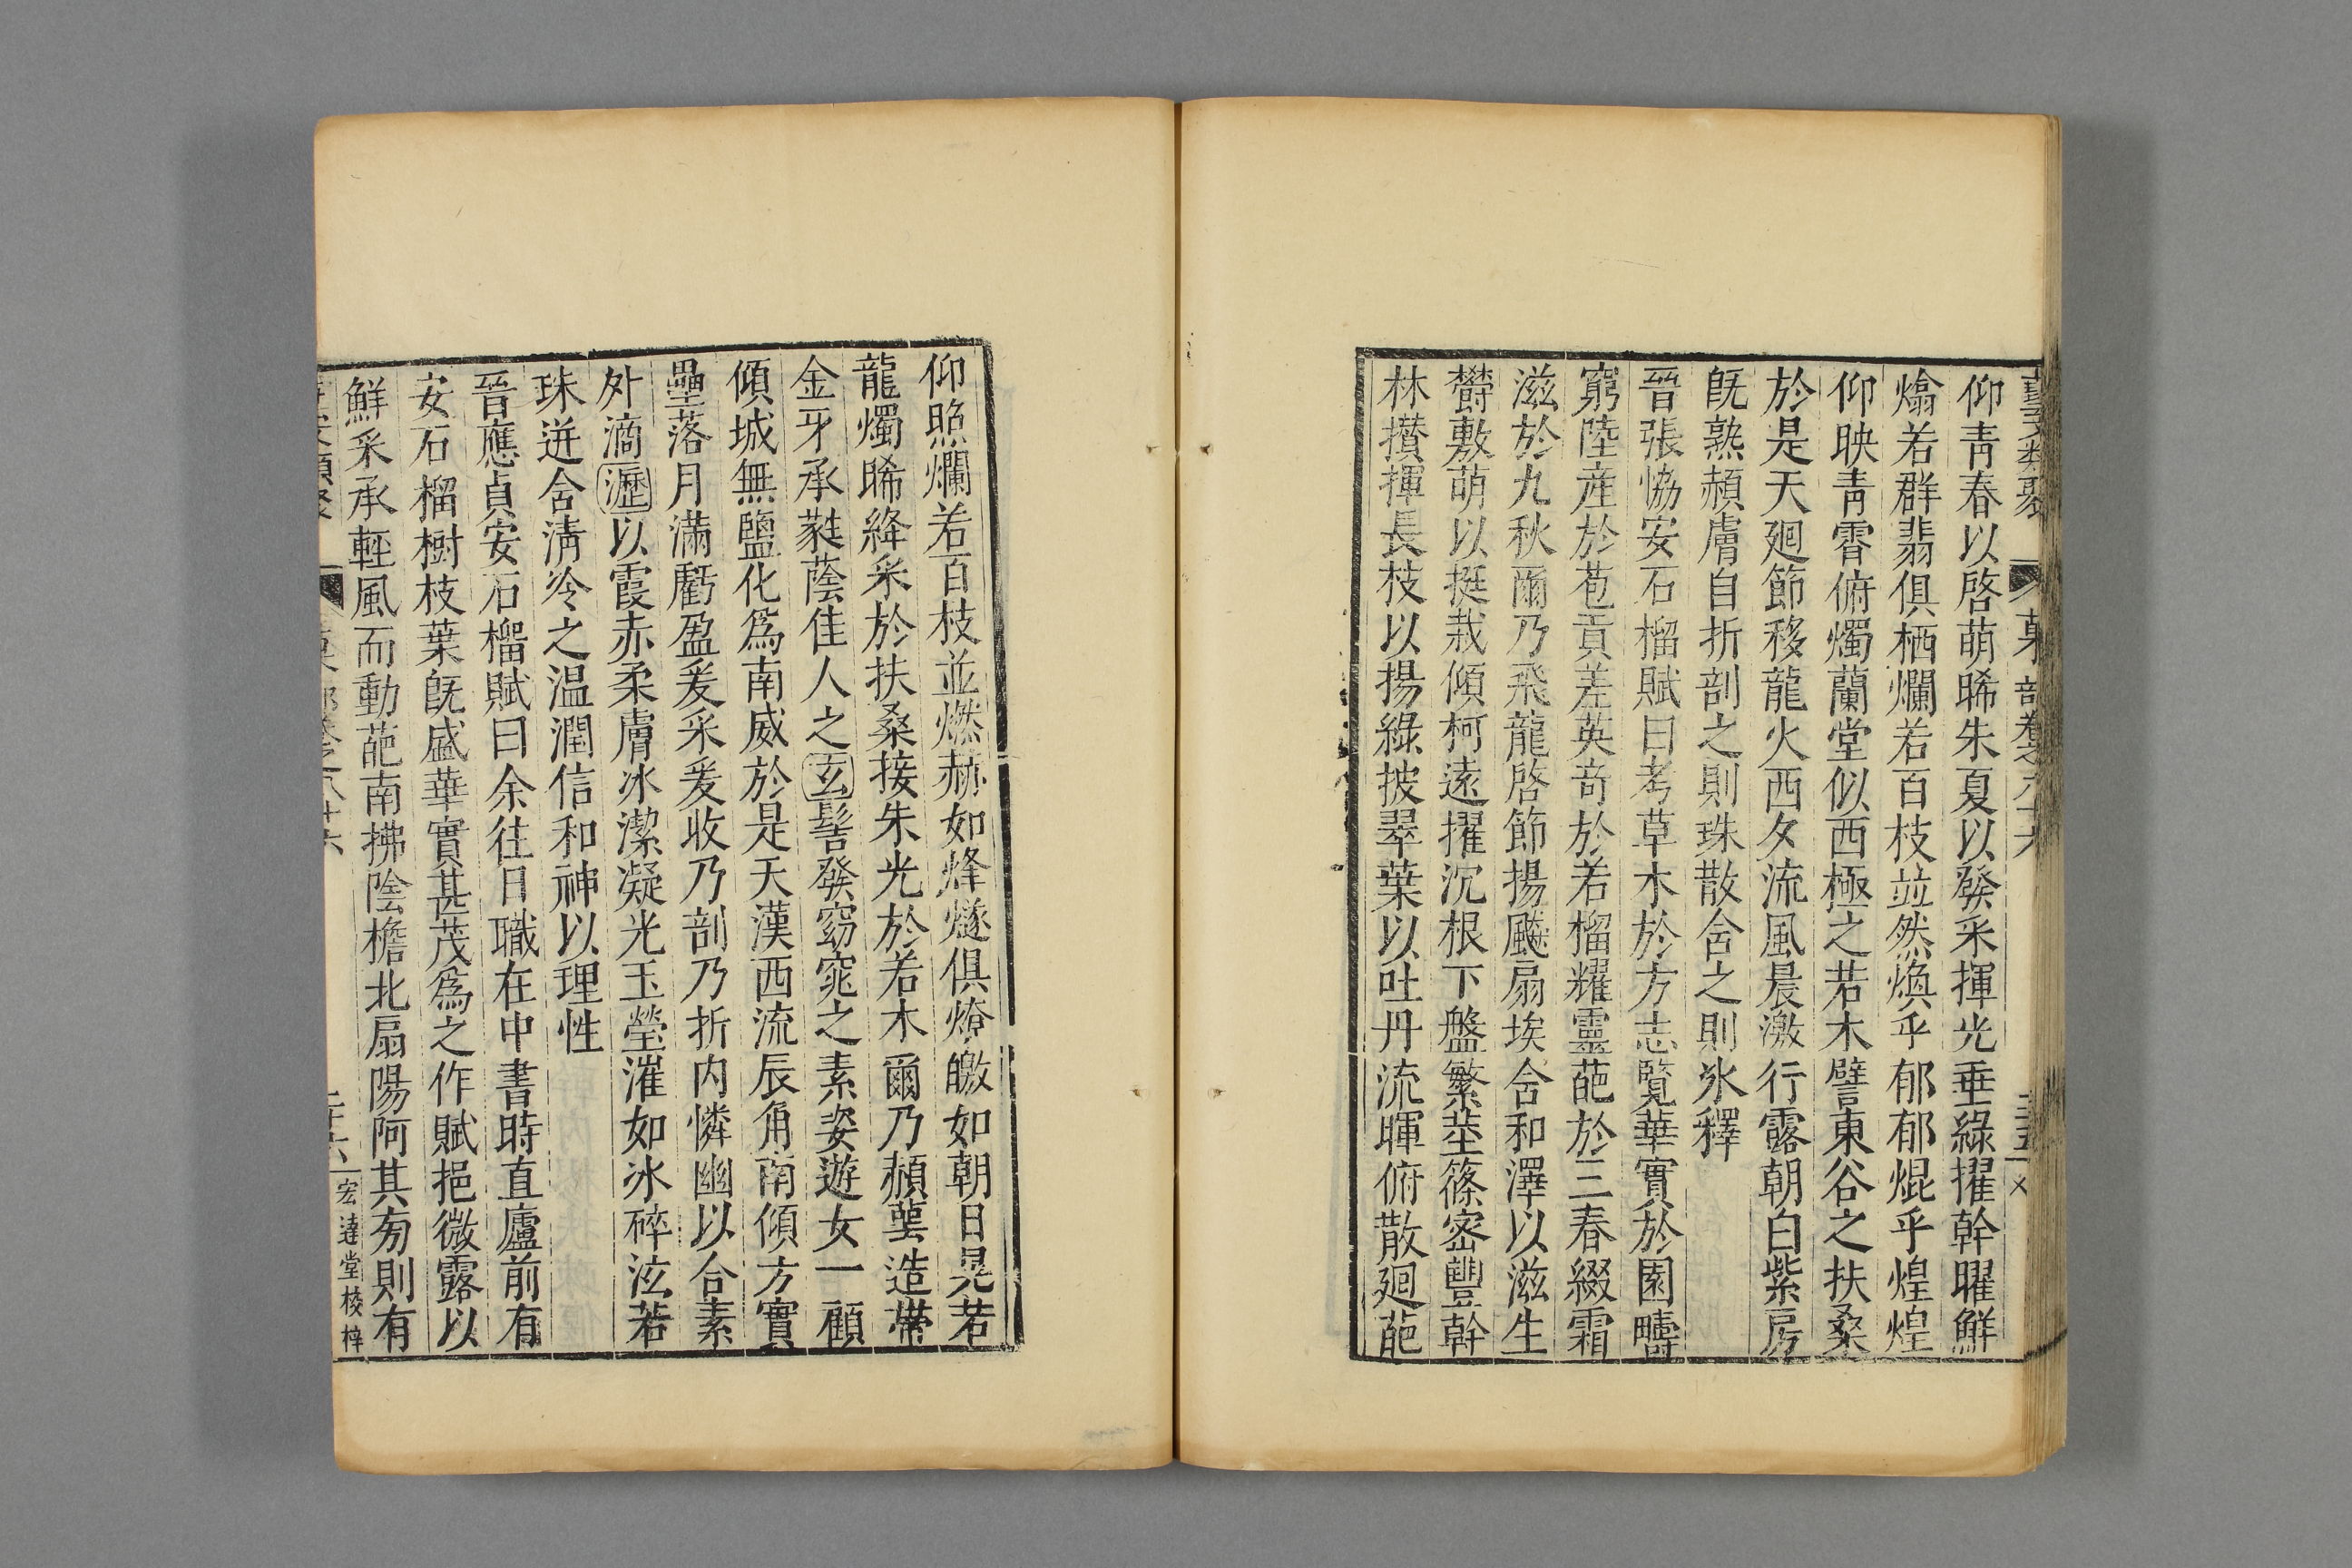 仰青春以啓萌晞朱夏以發采揮光垂綠擢幹曜鮮
熻若群翡俱栖爛若百枝並然煥乎郁郁焜乎煌煌
仰映青霄俯燭蘭堂似西極之若木譬東谷之扶桑
於是天廻節移龍火西夕流風晨激行露朝白紫房
旣熟赬膚自折剖之則珠散含之則氷釋
晉張恊安石榴賦曰考草木於方志覽華實於園疇
窮陸産於苞貢差英奇於若榴耀靈葩於三春綴霜
滋於九秋爾乃飛龍啓節揚飈扇埃含和澤以滋生
欎敷萌以挺栽傾柯遠擢沉根下盤繁莖篠密豐幹
林攅揮長枝以揚綠披翠葉以吐丹流暉俯散廻葩
仰照爛若百枝並燃赫如烽燧俱燎皦如朝日晃若
龍燭晞絳采於扶桑接朱光於若木爾乃赬萼造帶
金牙承蕤蔭佳人之玄髻發窈窕之素姿遊女一顧
傾城無鹽化爲南威於是天漢西流辰角南傾方實
壘落月滿虧盈爰采爰收乃剖乃折内憐幽以合素
外滴瀝以霞赤柔膚冰潔凝光玉瑩漼如冰碎泫若
珠迸含淸冷之温潤信和神以理性
晉應貞安石榴賦曰余往日職在中書時直廬前有
安石榴樹枝葉旣盛華實甚茂爲之作賦挹微露以
鮮采承輕風而動葩南拂陰檐北扇陽阿其旁則有
宏達堂校梓